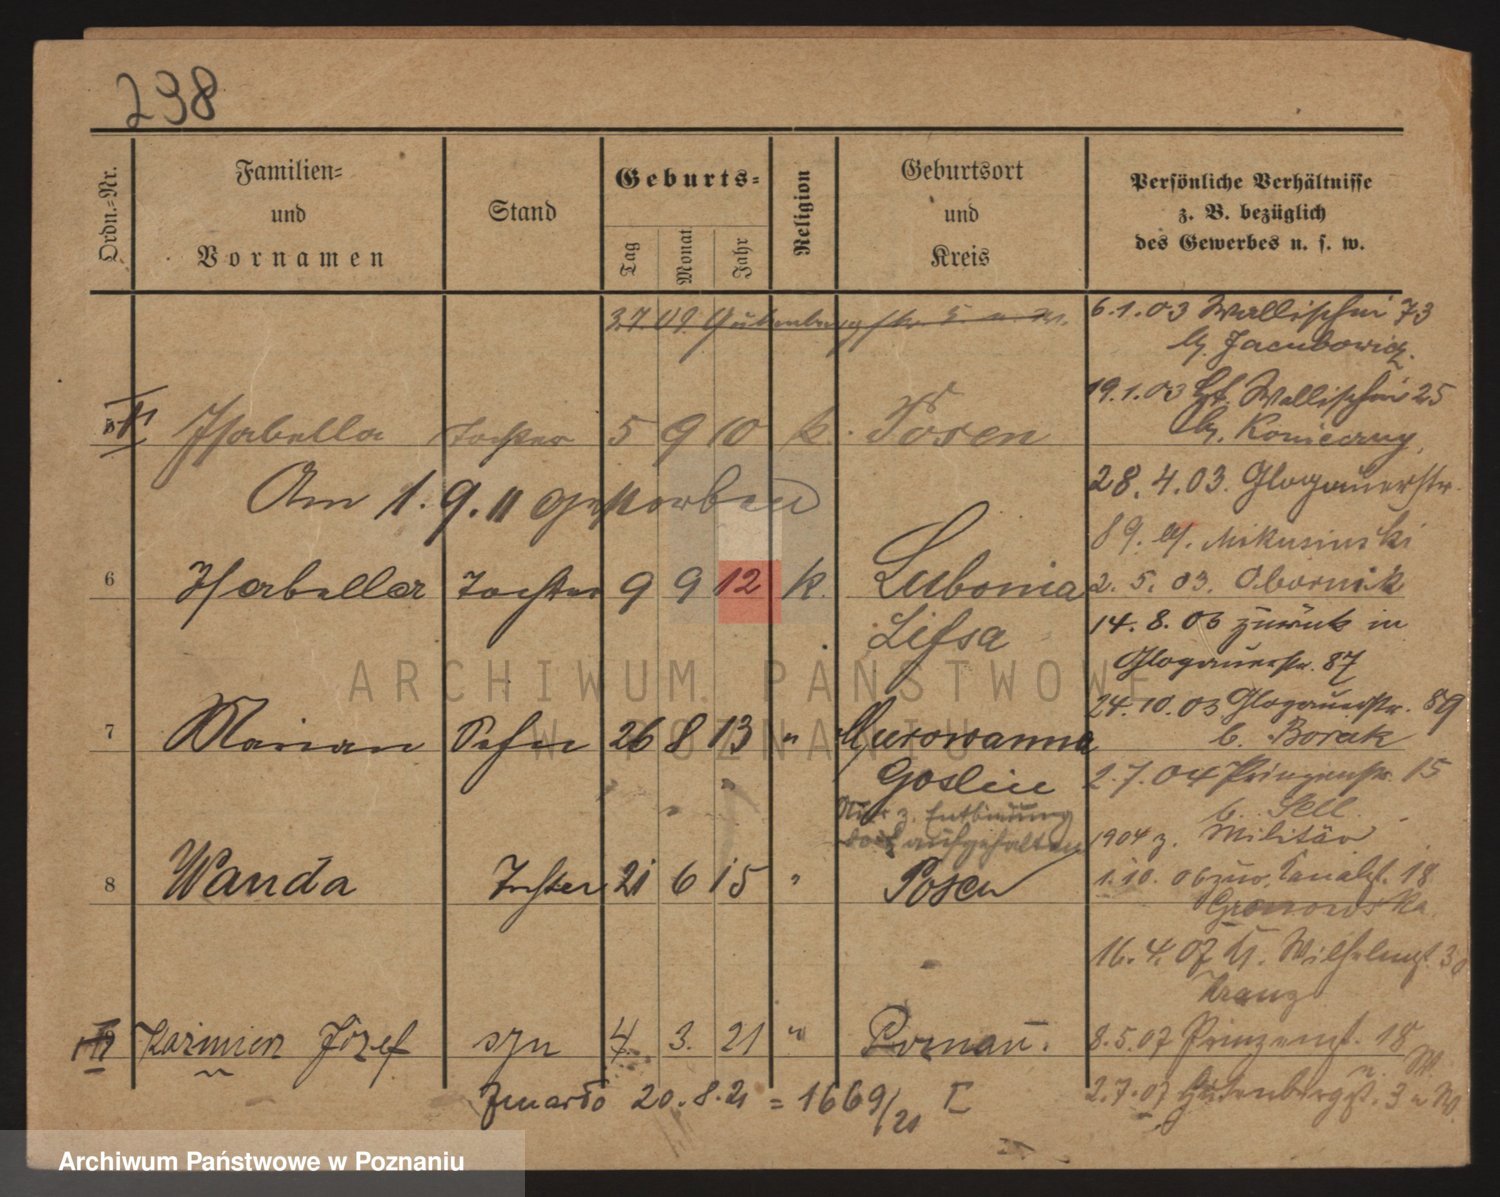 238
Ordn.=Nr.
Familien=
und
Vornamen
Stand
Geburts=
Tag
Monat
Jahr
Religion
Geburtsort
und
Kreis
Persönliche Verhältnisse
z. B. bezüglich
des Gewerbes u. s. w.
3.7.09. Gutenbergstr. 5 u. W.
6.1.03 Wallischei 73
b. Jacubowicz.
19.1.03 Wallischei 25
b. Konieczny.
Isabella Tochter 5 9 10 k. Posen
28.4.03. Glogauerstr.
Am 1.9.11 gestorben
89. b. Mikusinski
6 Isabella Tochter 9 9 12 k. Lubonia
Lissa
2.5.03. Obornik
14.8.03 zurück in
Glogauerstr. 87
24.10.03 Glogauerstr. 89
b. Borak
7 Marian Sohn 26 8 13 " Murowanna
Goslin
Nur z. Entbindung
dort aufgehalten
2.7.04 Prinzenstr. 15
b. Sell.
1904 z. Militär
8 Wanda Tochter 21 6 15 " Posen
1.10.06 zur. Kanalst. 18
Gronowska
16.4.07 Wilhelmst.
Kranz
Kazimierz Józef syn 4. 3. 21 " Poznań.
8.5.07 Prinzenst. 18
2.7.07 Gutenbergst. 3 u W.
Zmarło 20.8.21 = 1669/21 I
ARCHIWUM PAŃSTWOWE
W POZNANIU
Archiwum Państwowe w Poznaniu